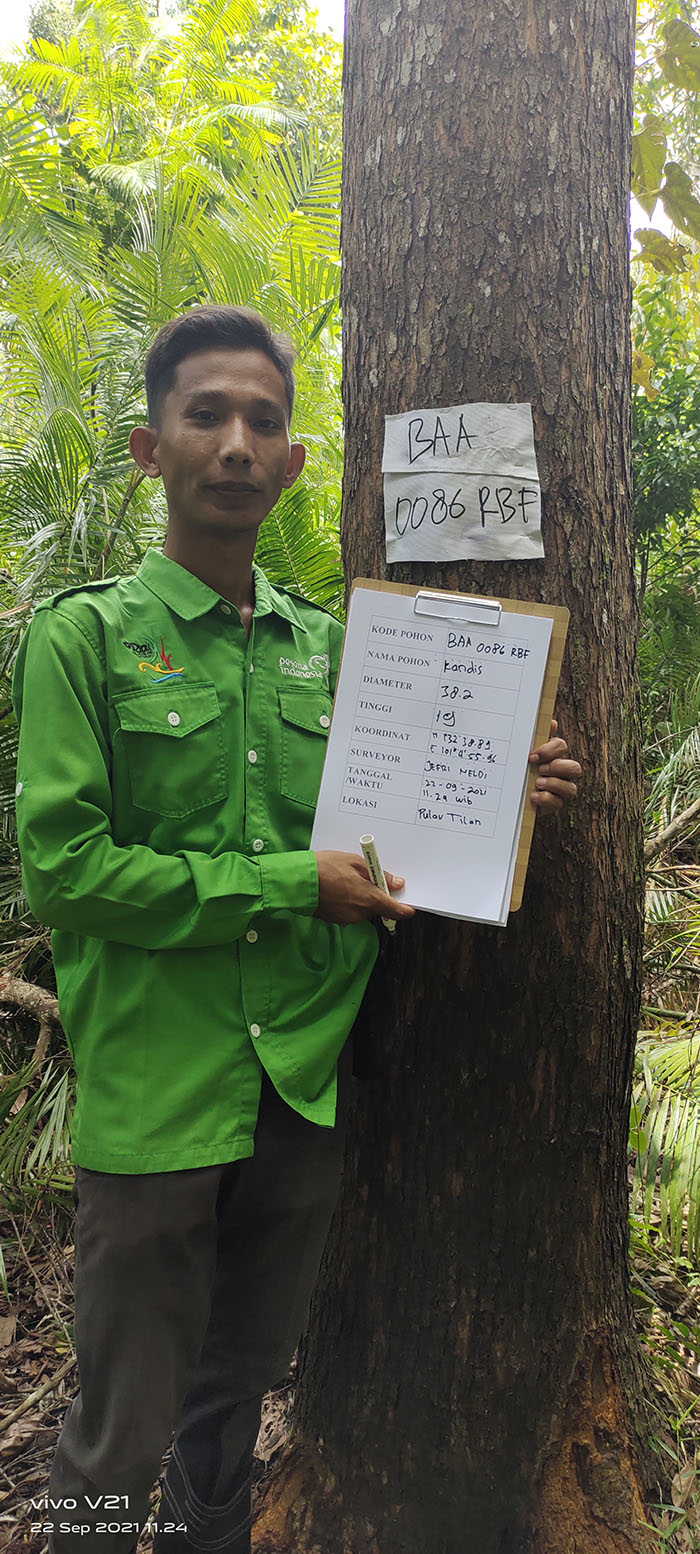 BAA
0086 RBF
KODE POHON BAA 0086 RBF
NAMA POHON Kandis
DIAMETER 38.2
TINGGI
KOORDINAT
SURVEYOR JEFRI MELDI
TANGGAL 22-09-2021
/WAKTU 11.24 wib
LOKASI Pulau Tilan
pesona
indonesia
vivo V21
22 Sep 2021 11.24